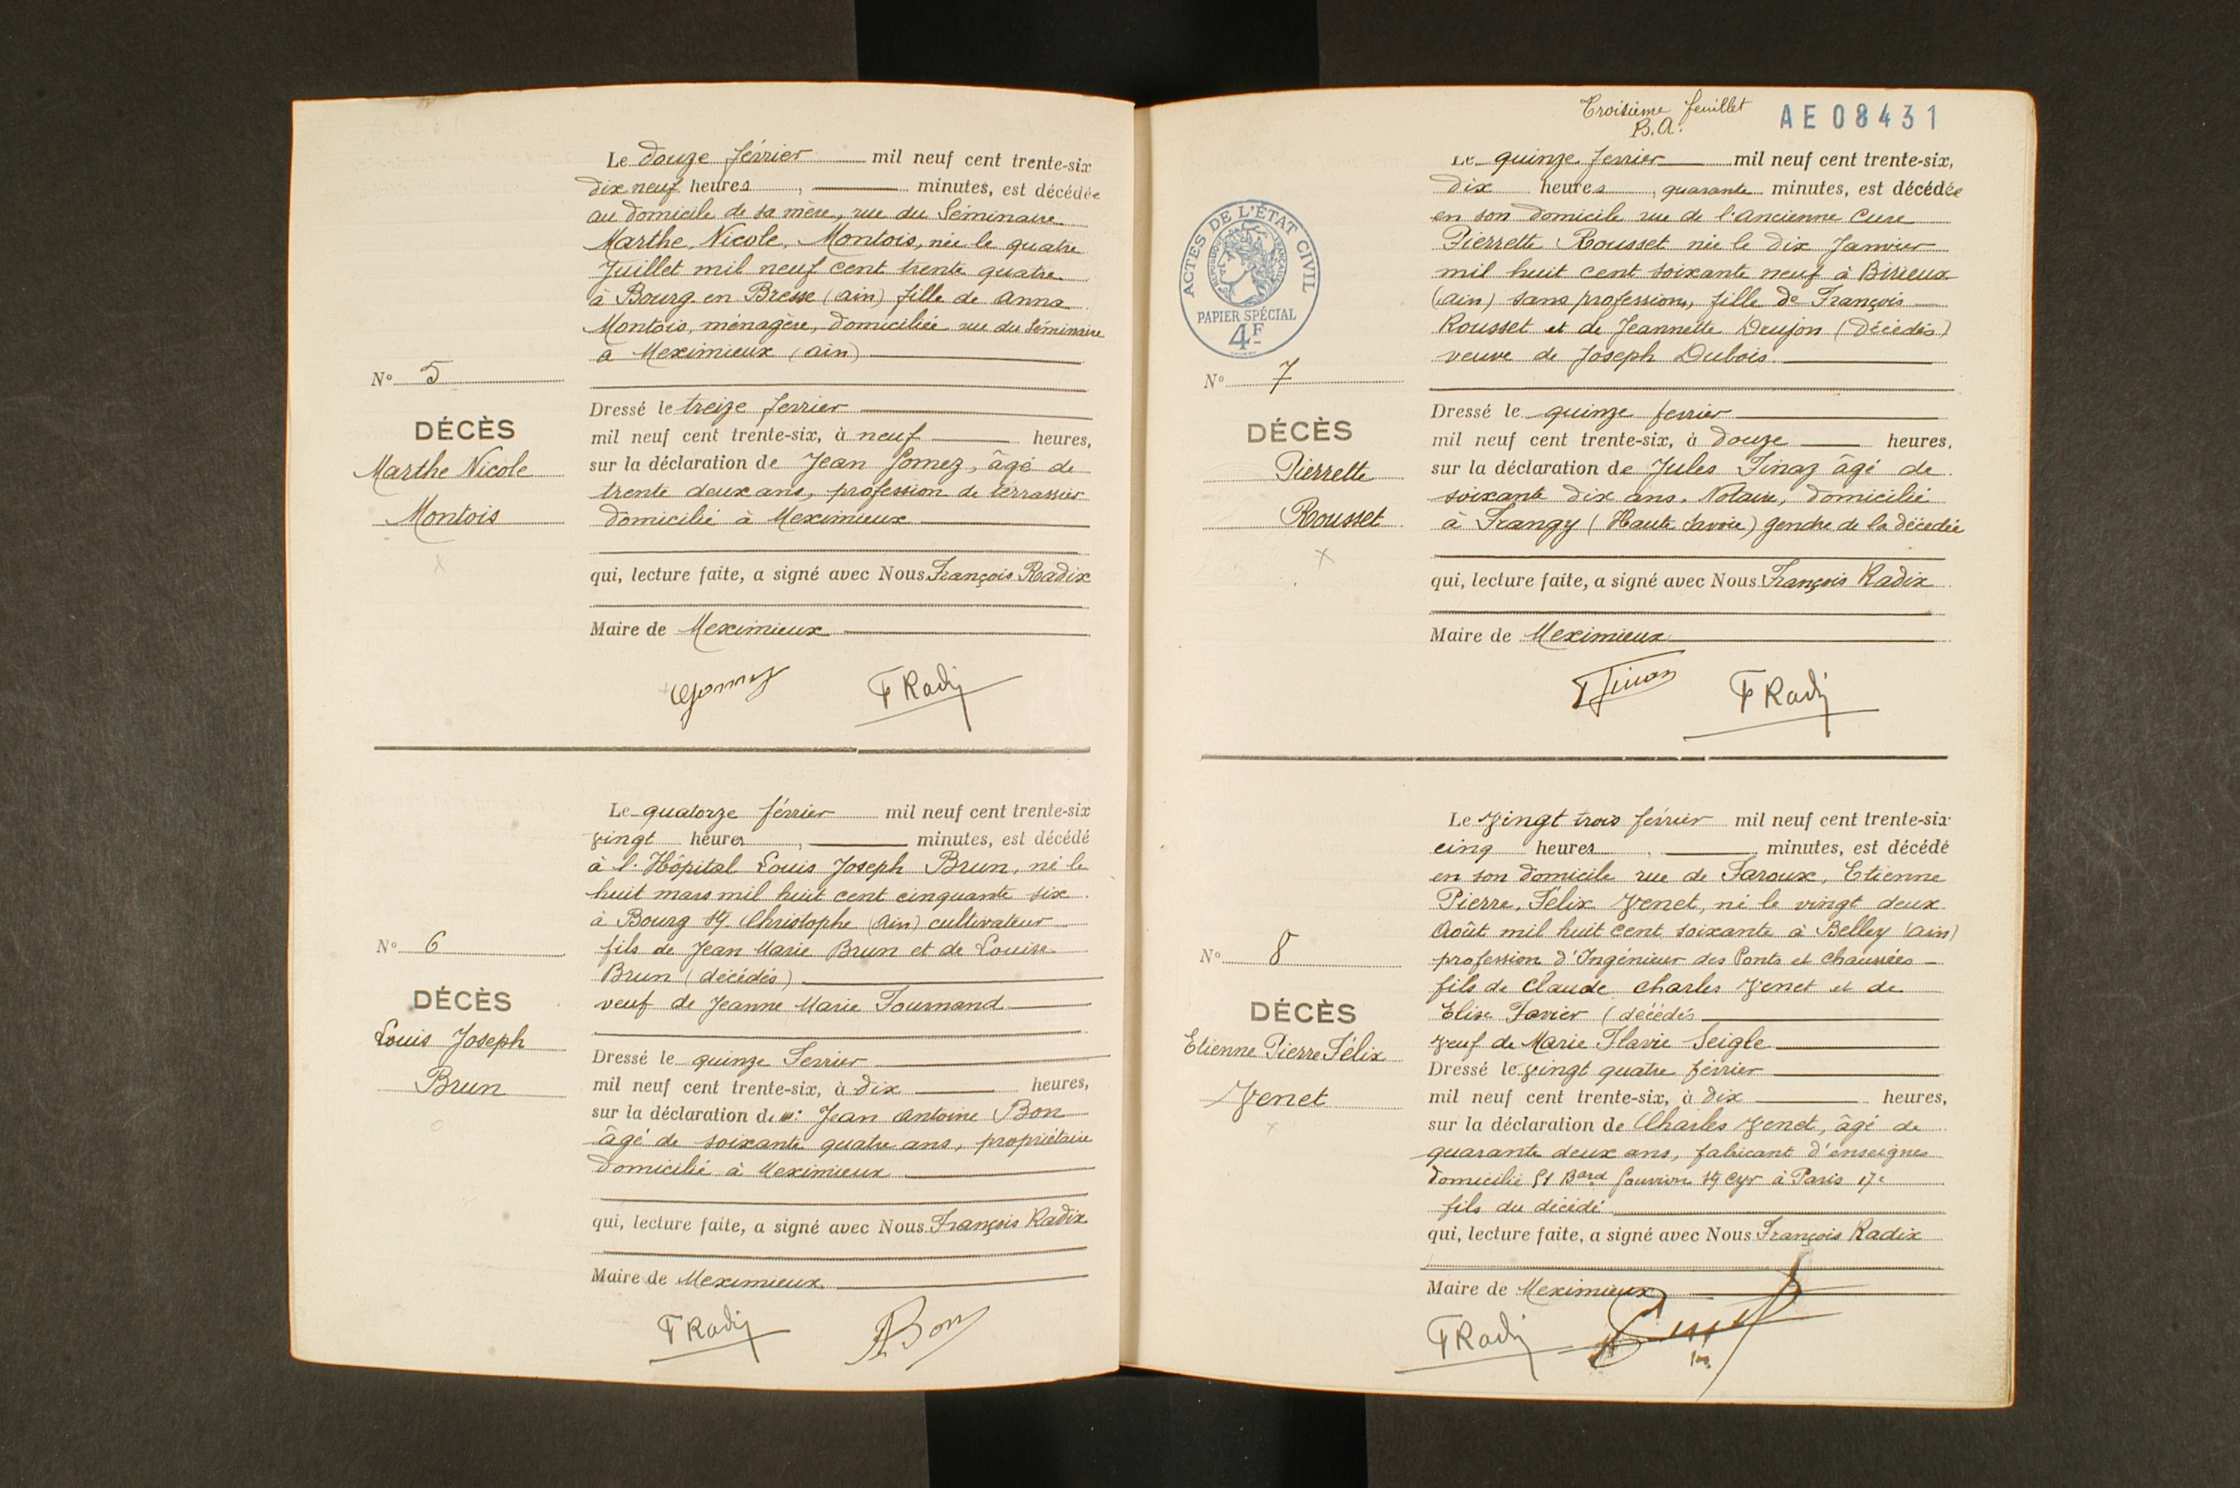 Le douze février mil neuf cent trente-six
dix neuf heures, minutes, est décédée
au domicile de sa mère, rue du Séminaire
Marthe, Nicole, Montois, née le quatre
Juillet mil neuf cent trente quatre
à Bourg en Bresse (ain) fille de Anna
Montois, ménagère, domiciliée rue du Séminaire
à Meximieux (ain)
N° 5
DÉCÈS
Marthe Nicole
Montois
Dressé le treize fevrier
mil neuf cent trente-six, à neuf heures,
sur la déclaration de Jean Gomez, âgé de
trente deux ans, profession de terrassier
domicilié à Meximieux
qui, lecture faite, a signé avec Nous François Radix
Maire de Meximieux
Gomez F Radix
Le quatorze février mil neuf cent trente-six
vingt heures, minutes, est décédé
à l'Hôpital Louis Joseph Brun, né le
huit mars mil huit cent cinquante six
à Bourg St Christophe (Ain) cultivateur
fils de Jean Marie Brun et de Louise
Brun (décédés)
veuf de Jeanne Marie Tournand
N° 6
DÉCÈS
Louis Joseph
Brun
Dressé le quinze Fevrier
mil neuf cent trente-six, à dix heures,
sur la déclaration de Mr Jean Antoine Bon
âgé de soixante quatre ans, propriétaire
domicilié à Meximieux
qui, lecture faite, a signé avec Nous François Radix
Maire de Meximieux
F Radix Bon
Troisième feuillet
B.A.
AE08431
ACTES DE L'ÉTAT CIVIL
RÉPUBLIQUE FRANÇAISE
PAPIER SPÉCIAL
4F
Le quinze fevrier mil neuf cent trente-six,
dix heures, quarante minutes, est décédée
en son domicile rue de l'ancienne Cure
Pierrette Rousset née le dix Janvier
mil huit cent soixante neuf à Birieux
(ain) sans profession, fille de François
Rousset et de Jeannette Drujon (décédés)
veuve de Joseph Dubois
N° 7
DÉCÈS
Pierrette
Rousset
Dressé le quinze fevrier
mil neuf cent trente-six, à douze heures,
sur la déclaration de Jules Finaz âgé de
soixante dix ans, Notaire, domicilié
à Frangy (Haute Savoie) gendre de la décédée
qui, lecture faite, a signé avec Nous François Radix
Maire de Meximieux
Finaz F Radix
Le Vingt trois février mil neuf cent trente-six
cinq heures, minutes, est décédé
en son domicile rue de Faroux, Etienne
Pierre, Félix Venet, né le vingt deux
Août mil huit cent soixante à Belley (ain)
profession d'Ingénieur des Ponts et chaussées
fils de Claude Charles Venet et de
Elise Favier (décédés
Veuf de Marie Flavie Seigle
N° 8
DÉCÈS
Etienne Pierre Félix
Venet
Dressé le vingt quatre février
mil neuf cent trente-six, à dix heures,
sur la déclaration de Charles Venet, âgé de
quarante deux ans, fabricant d'enseignes
domicilié 51 Bard Gouvion St Cyr à Paris 17e
fils du décédé
qui, lecture faite, a signé avec Nous François Radix
Maire de Meximieux
F Radix